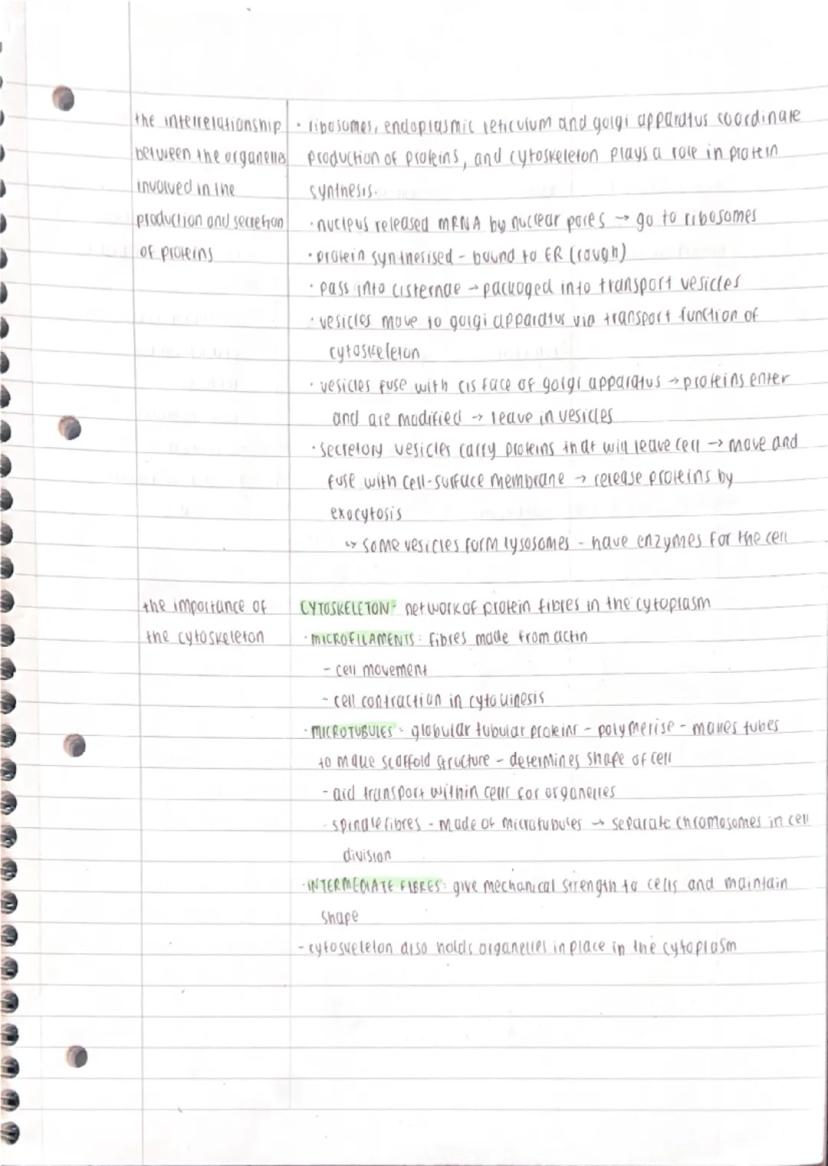 the interrelationship
between the organelles
involved in the
production and secretion
of proteins
· ribosomes, endoplasmic reticulum and golgi apparatus coordinate
production of proteins, and cytoskeleton plays a role in protein
synthesis.
· nucleus released mRNA by nuclear pores → go to ribosomes
· protein synthesised - bound to ER (rough)
· pass into cisternae → packaged into transport vesicles
· vesicles move to golgi apparatus via transport function of
cytoskeleton
· vesicles fuse with cis face of golgi apparatus → proteins enter
and are modified → leave in vesicles
· secretory vesicles carry proteins that will leave cell → move and
fuse with cell-surface membrane → release proteins by
exocytosis
↳ some vesicles form lysosomes - have enzymes for the cell
the importance of
the cytoskeleton
CYTOSKELETON: network of protein fibres in the cytoplasm
· MICROFILAMENTS: fibres made from actin
- cell movement
- cell contraction in cytokinesis
· MICROTUBULES: globular tubular proteins - polymerise - makes tubes
to make scaffold structure - determines shape of cell
- aid transport within cells for organelles
· spindle fibres - made of microtubules → separate chromosomes in cell
division
· INTERMEDIATE FIBRES: give mechanical strength to cells and maintain
shape
- cytoskeleton also holds organelles in place in the cytoplasm